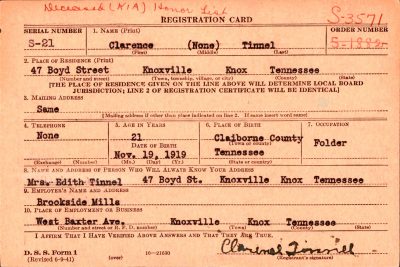 Deceased (KIA) Honor List
REGISTRATION CARD
S-3571
SERIAL NUMBER
1. NAME (Print)
ORDER NUMBER
S-21
Clarence (None) Tinnel
(First) (Middle) (Last)
2. PLACE OF RESIDENCE (Print)
47 Boyd Street Knoxville Knox Tennessee
(Number and street) (Town, township, village, or city) (County) (State)
[THE PLACE OF RESIDENCE GIVEN ON THE LINE ABOVE WILL DETERMINE LOCAL BOARD
JURISDICTION; LINE 2 OF REGISTRATION CERTIFICATE WILL BE IDENTICAL]
3. MAILING ADDRESS
Same
[Mailing address if other than place indicated on line 2. If same insert word same]
4. TELEPHONE
5. AGE IN YEARS
6. PLACE OF BIRTH
7. OCCUPATION
None
21
Claiborne County
(Town or county)
Folder
DATE OF BIRTH
Nov. 19, 1919
Tennessee
(Exchange) (Number)
(Mo.) (Day) (Yr.)
(State or country)
8. NAME AND ADDRESS OF PERSON WHO WILL ALWAYS KNOW YOUR ADDRESS
Mrs. Edith Tinnel 47 Boyd St. Knoxville Knox Tennessee
9. EMPLOYER'S NAME AND ADDRESS
Brookside Mills
10. PLACE OF EMPLOYMENT OR BUSINESS
West Baxter Ave. Knoxville Knox Tennessee
(Number and street or R. F. D. number) (Town) (County) (State)
I AFFIRM THAT I HAVE VERIFIED ABOVE ANSWERS AND THAT THEY ARE TRUE.
D. S. S. Form 1
(Revised 6-9-41)
(over)
16-21630
(Registrant's signature)